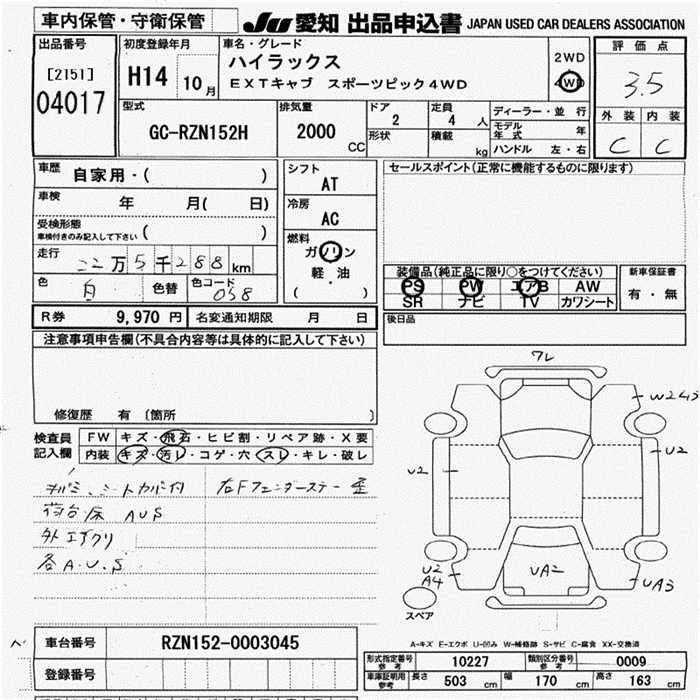 車内保管・守衛保管
JU 愛知 出品申込書 JAPAN USED CAR DEALERS ASSOCIATION
出品番号
[2151]
04017
初度登録年月
H14 10月
車名・グレード
ハイラックス
EXTキャブ スポーツピック4WD
2WD
4WD
評価点
3.5
外装 内装
C C
型式
GC-RZN152H
排気量
2000 CC
ドア
2
形状
定員
4 人
積載
kg
ディーラー・並行
モデル年式 年
ハンドル 左・右
車歴
自家用・( )
車検
年 月( 日)
受検形態
車検付きのみ記入して下さい ( )
走行
22万5千288km
色
白
色替
色コード
058
シフト
AT
冷房
AC
燃料
ガソリン
軽・油
( )
セールスポイント(正常に機能するものに限ります)
装備品(純正品に限り○をつけてください)
PS PW エアB AW
SR ナビ TV カワシート
新車保証書
有・無
後日品
R券 9,970円 名変通知期限 月 日
注意事項申告欄(不具合内容等は具体的に記入して下さい)
修復歴 有 〔箇所 〕
検査員記入欄
FW キズ・飛石・ヒビ割・リペア跡・X要
内装 キズ・汚レ・コゲ・穴・スレ・キレ・破レ
シートカバー付
右Fフェンダーステー歪
荷台床 AUS
外エグリ
各A.U.S
ワレ
U2
U2
U2
A4
UA2
UA3
スペア
A-キズ E-エクボ U-凹み W-補修跡 S-サビ C-腐食 XX-交換済
車台番号 RZN152-0003045
登録番号
形式指定番号 参考 10227 類別区分番号 参考 0009
車庫証明用 参考 長さ 503 cm 幅 170 cm 高さ 163 cm